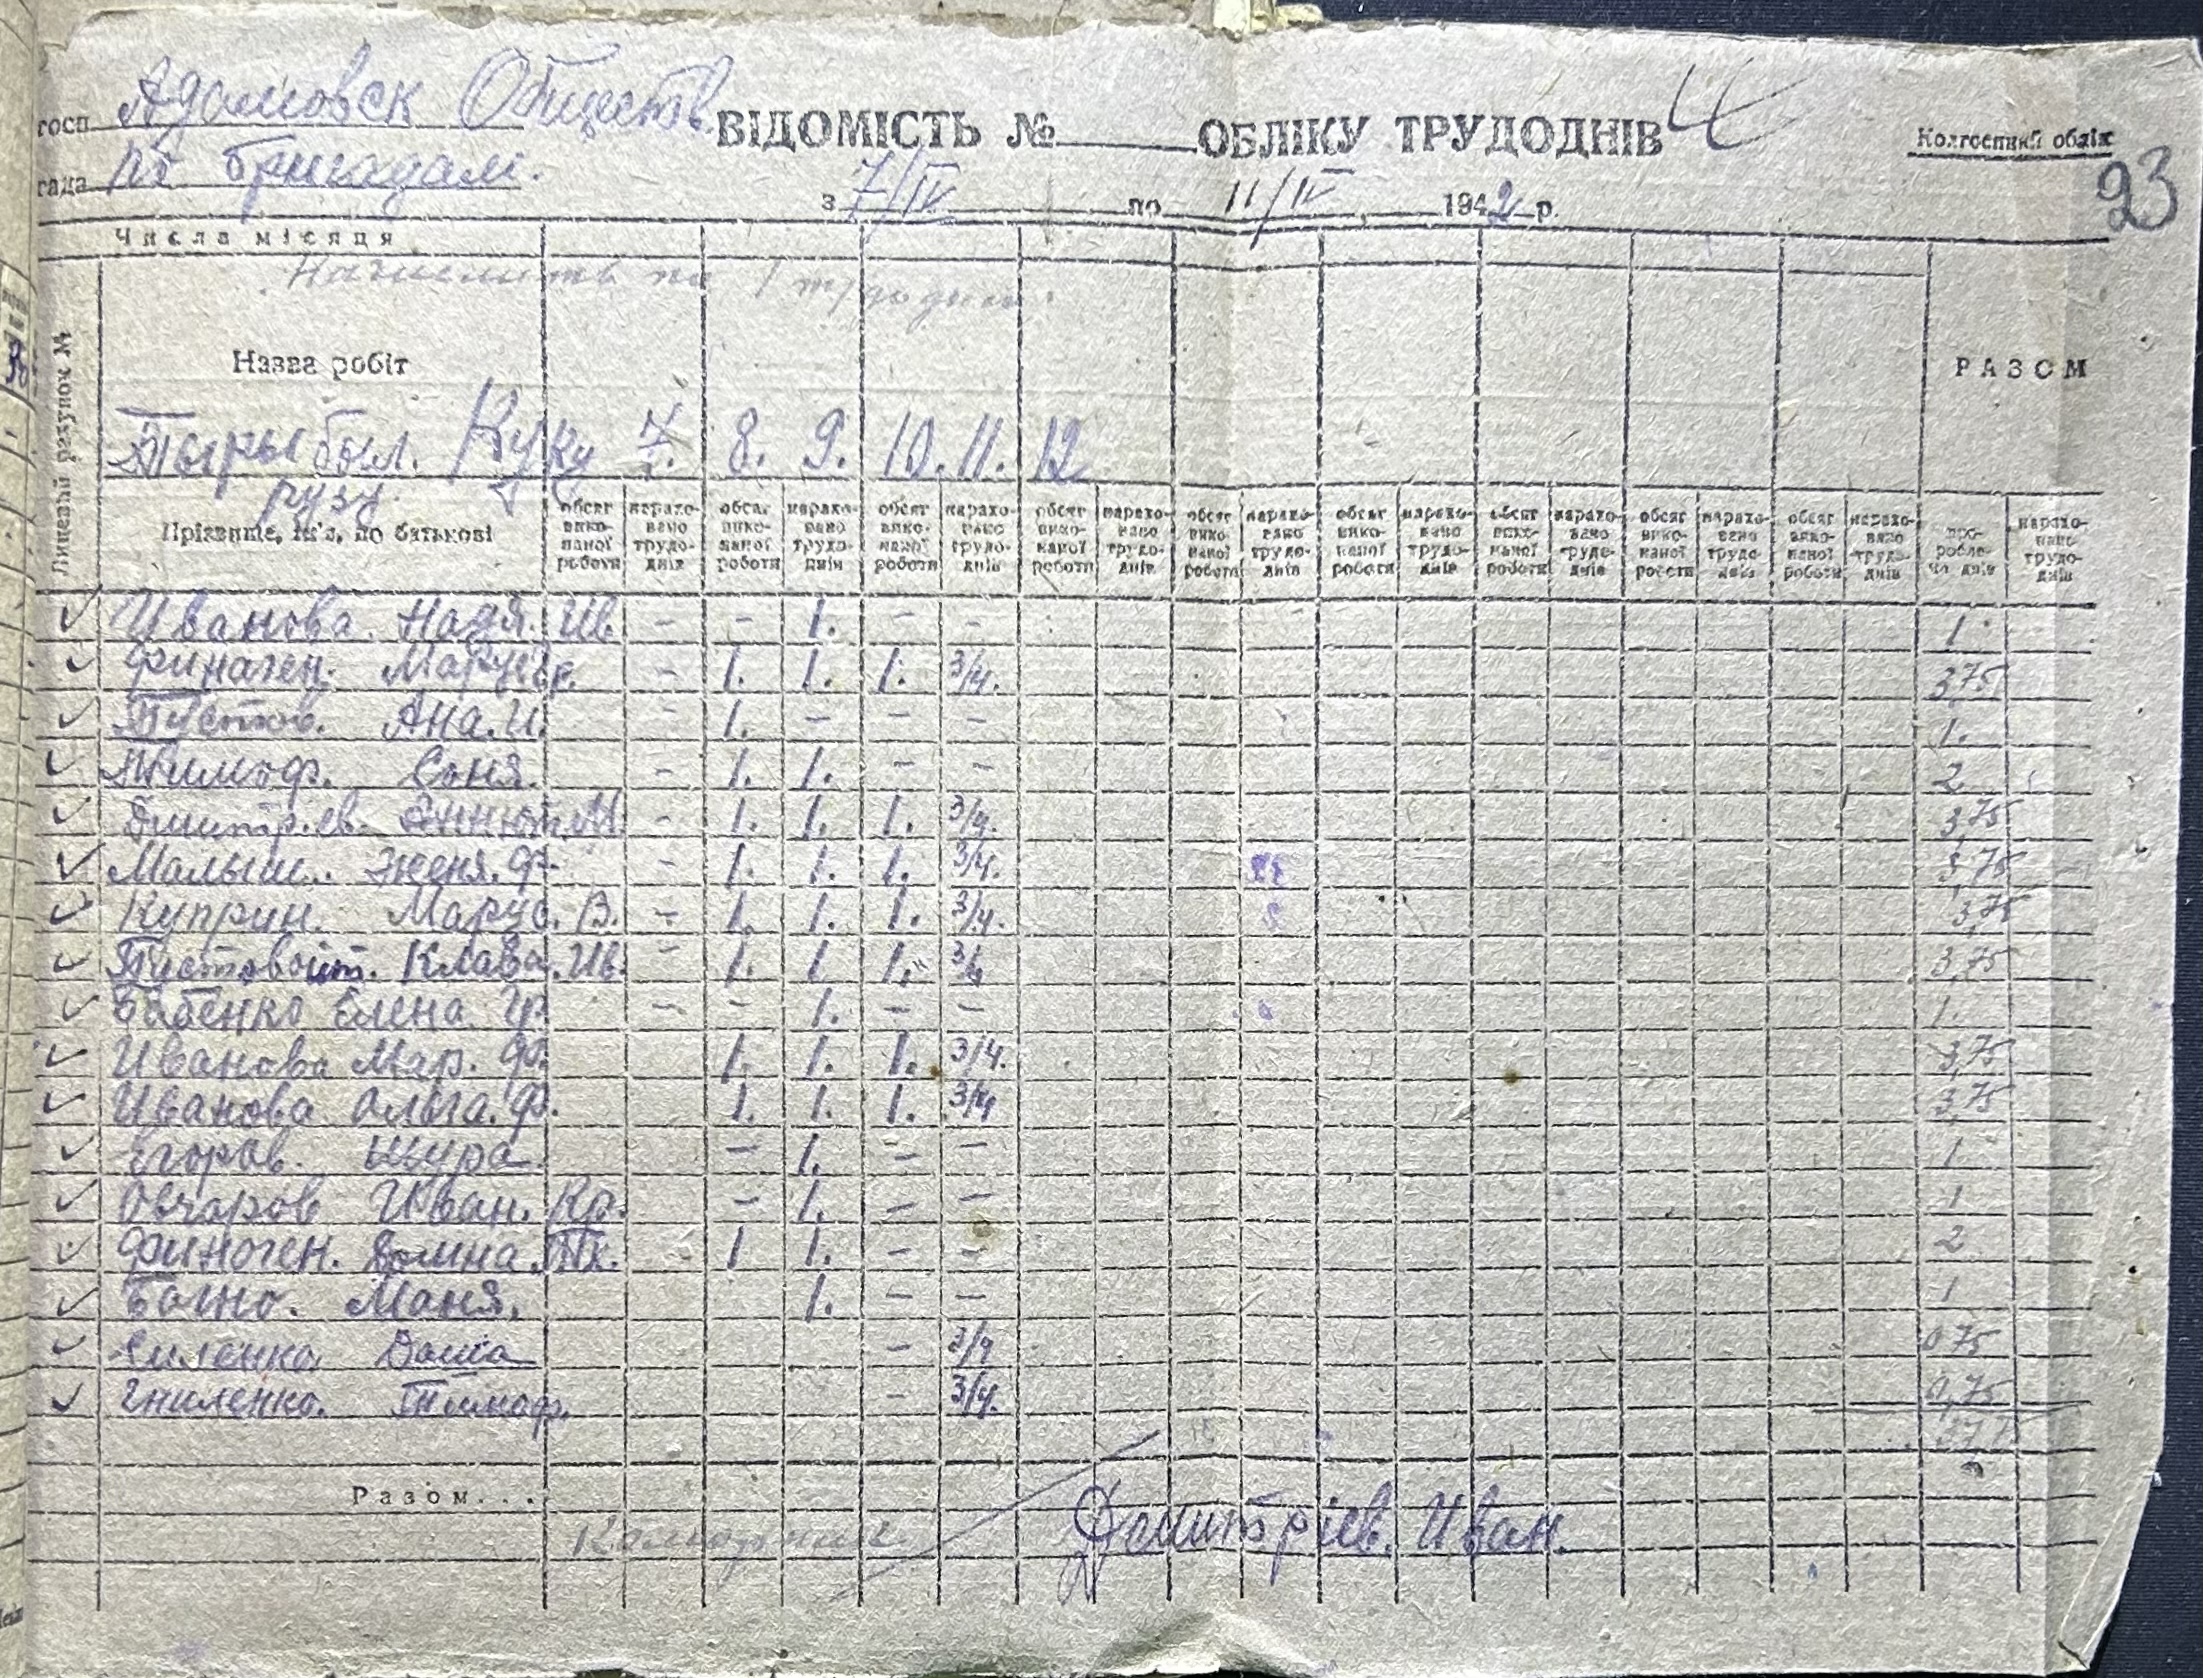 госп. Адамовск Обществ. ВІДОМІСТЬ № ОБЛІКУ ТРУДОДНІВ Колгоспний облік
гада по бригадам. 23
з 7/IV по 11/IV 1942 р.
Числа місяця
Начислить по 1 трудодню.
Лицевий рахунок №
Назва робіт РАЗОМ
был. Куку 7. 8. 9. 10. 11. 12
рузу
Прізвище, ім'я, по батькові обсяг виконаної роботи нараховано трудоднів обсяг виконаної роботи нараховано трудоднів обсяг виконаної роботи нараховано трудоднів обсяг виконаної роботи нараховано трудоднів обсяг виконаної роботи нараховано трудоднів обсяг виконаної роботи нараховано трудоднів обсяг виконаної роботи нараховано трудоднів обсяг виконаної роботи нараховано трудоднів обсяг виконаної роботи нараховано трудоднів пророблено днів нараховано трудоднів
Иванова. Надя. Ив - - 1. - - 1
Финаген. Маруся - 1. 1. 1. 3/4. 3,75
Пустов. Ана. И. - 1. - - - 1.
Тимоф. Соня. - 1. 1. - - 2
Дмитр.ев. М. - 1. 1. 1. 3/4. 3,75
Малыш. Женя. Ф. - 1. 1. 1. 3/4. 3,75
Куприн. Марус. В. - 1. 1. 1. 3/4. 3,75
Пустовойт. Клава. Ив. - 1. 1 1. 3/4 3,75
Бабенко Елена Гр. - - 1. - - 1.
Иванова Мар. Ф. 1. 1. 1. 3/4. 3,75
Иванова Ольга. Ф. 1. 1. 1. 3/4 3,75
Егоров. Шура - 1. - - 1.
Овчаров Иван. Кр. - 1. - - 1
Финоген. - 1 1. - - 2
Маня. 1. - - 1
Даша - 3/4 0,75
Гниленко. Тимоф. - 3/4. 0,75
Разом...
Дмитріев. Иван.